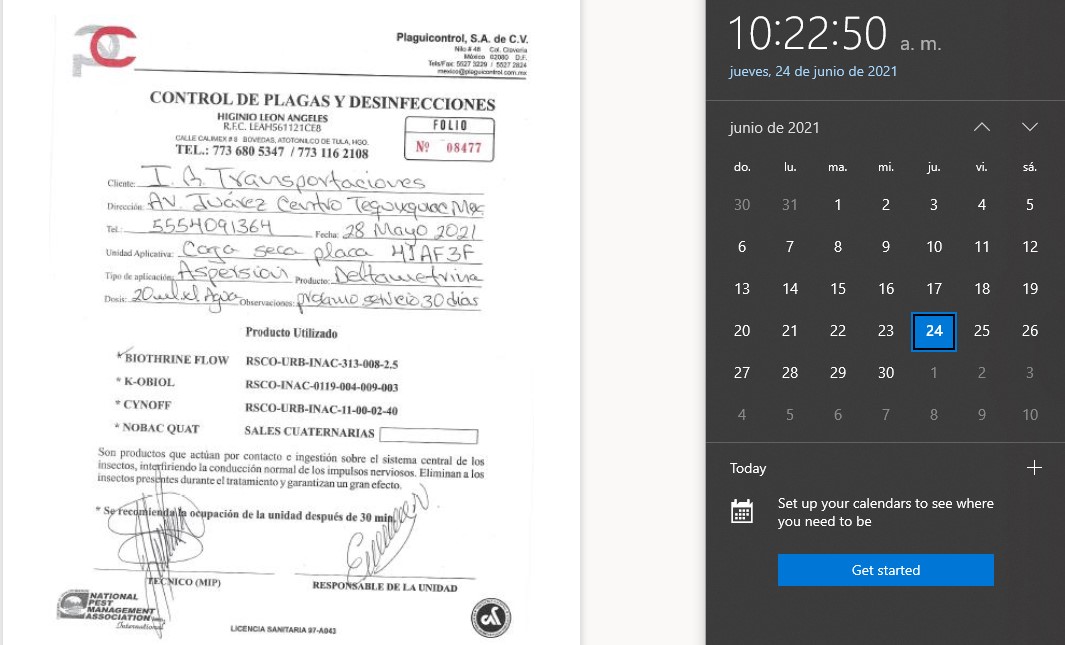 Plaguicontrol, S.A. de C.V.
Nilo # 48 Col. Clavería
México 02080 D.F.
Tels/Fax: 5527 3229 / 5527 2824
mexico@plaguicontrol.com.mx
CONTROL DE PLAGAS Y DESINFECCIONES
HIGINIO LEON ANGELES
R.F.C. LEAH561121CE8
CALLE CALIMEX # 8 BOVEDAS, ATOTONILCO DE TULA, HGO.
TEL.: 773 680 5347 / 773 116 2108
FOLIO
Nº 08477
Cliente: I. B. Transportaciones
Dirección: Av. Juárez Centro Tequixquiac Mex.
Tel.: 5554091364 Fecha: 28 Mayo 2021
Unidad Aplicativa: Caja seca placa 41AF3F
Tipo de aplicación: Aspersión Producto: Deltametrina
Dosis: 20ml.xl Agua Observaciones: próximo servicio 30 días
Producto Utilizado
* BIOTHRINE FLOW RSCO-URB-INAC-313-008-2.5
* K-OBIOL RSCO-INAC-0119-004-009-003
* CYNOFF RSCO-URB-INAC-11-00-02-40
* NOBAC QUAT SALES CUATERNARIAS
Son productos que actúan por contacto e ingestión sobre el sistema central de los
insectos, interfiriendo la conducción normal de los impulsos nerviosos. Eliminan a los
insectos presentes durante el tratamiento y garantizan un gran efecto.
* Se recomienda la ocupación de la unidad después de 30 min.
TÉCNICO (MIP) RESPONSABLE DE LA UNIDAD
NATIONAL
PEST
MANAGEMENT
ASSOCIATION
International
LICENCIA SANITARIA 97-A043
10:22:50 a. m.
jueves, 24 de junio de 2021
junio de 2021
do. lu. ma. mi. ju. vi. sá.
30 31 1 2 3 4 5
6 7 8 9 10 11 12
13 14 15 16 17 18 19
20 21 22 23 24 25 26
27 28 29 30 1 2 3
4 5 6 7 8 9 10
Today
Set up your calendars to see where
you need to be
Get started